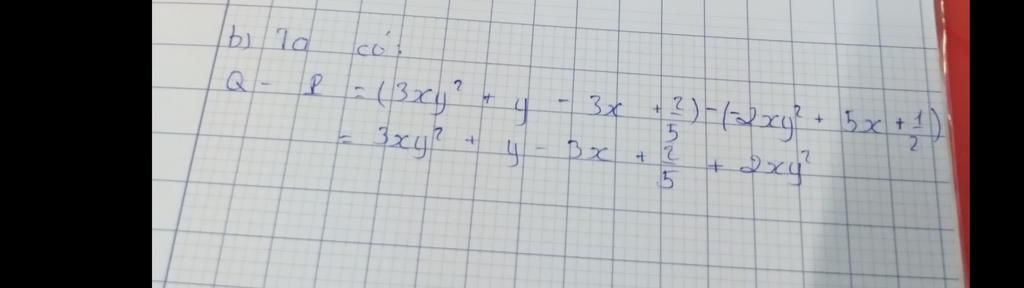 b) Ta có:
Q - P = (3xy² + y - 3x + 2/5) - (-2xy² + 5x + 1/2)
= 3xy² + y - 3x + 2/5 + 2xy²